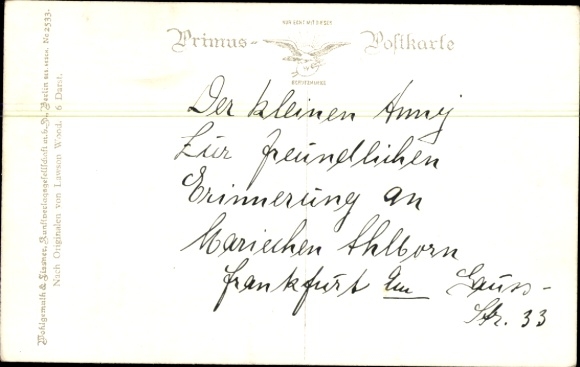 Primus- Postkarte
Der kleinen Anny
Zur freundlichen
Erinnerung an
Mariechen Ahlborn
Frankfurt a/m Gauss-
Str. 33
Wohlgemuth & Lissner, Kunstverlagsgesellschaft m.b.H., Berlin No 2533.
Nach Originalen von Lawson Wood. 6 Darst.